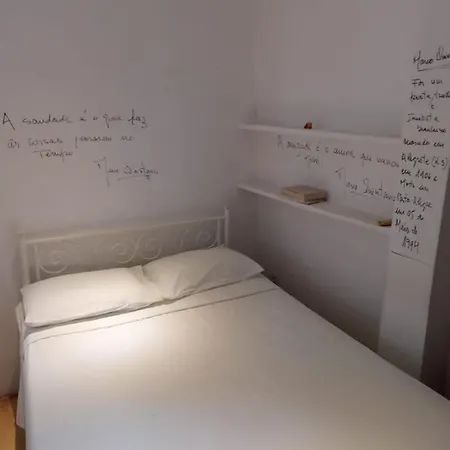 A saudade é o que faz
as coisas pararem no
Tempo
Mario Quintana
A saudade é o amor que
fica
Mario Quintana
Mario Quintana
Foi um
poeta,
e
Jornalista
brasileiro
nascido em
Alegrete (RS)
em 1906 e
Morto em
Porto Alegre
em 05 de
Maio de
1994